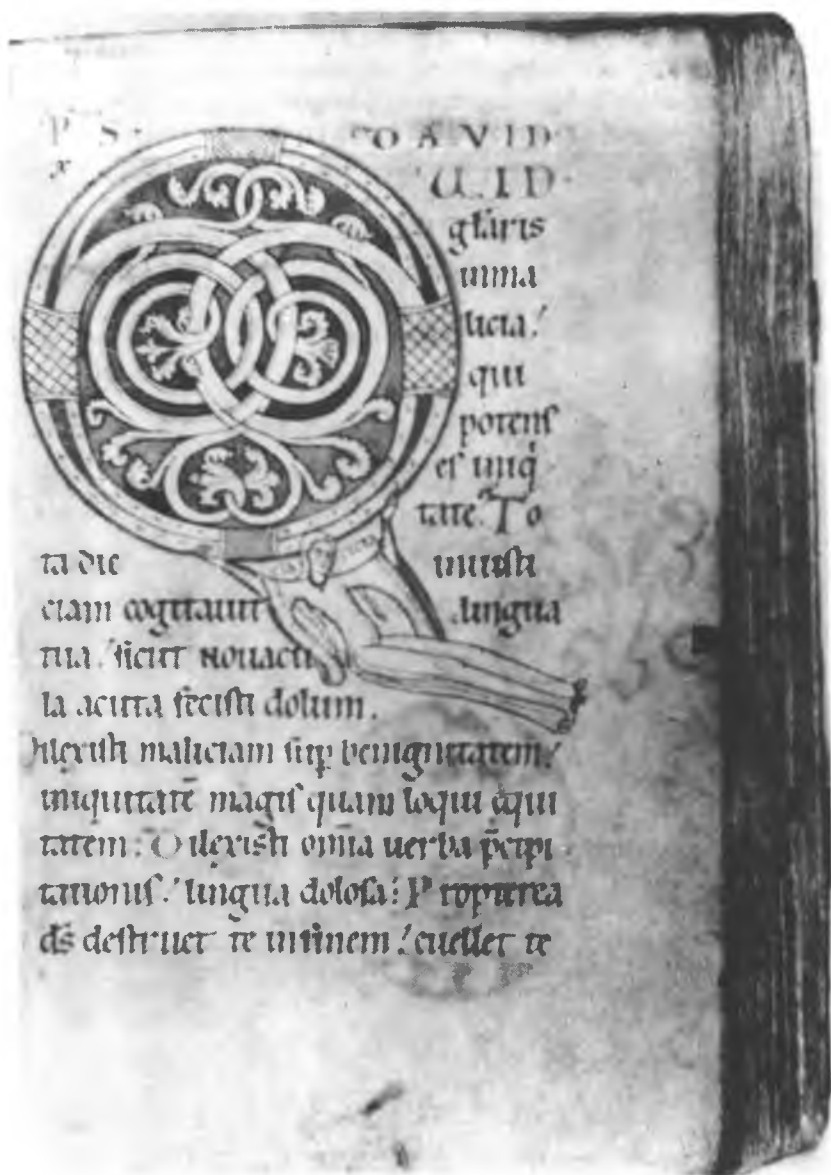 PS DAVID
UID
gl̄aris
inma
licia:
qui
potens
es iniq̇
tate. To
ta die iniusti
ciam cogitauit lingua
tua: sicut nouacu
la acuta fecisti dolum.
Dilexisti maliciam sup̄ benignitatem:
iniquitatē magis quam loqui equi
tatem: Dilexisti om̄ia uerba p̄cipi
tationis: lingua dolosa: Propterea
ds̄ destruet te infinem: euellet te